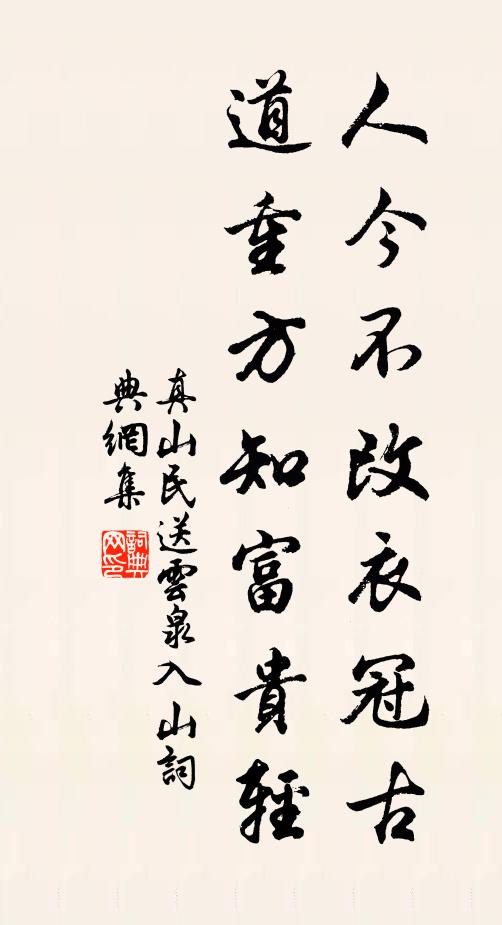 人今不改衣冠古
道重方知富貴輕
真山民送雲泉入山詞
典網集
詞典网印